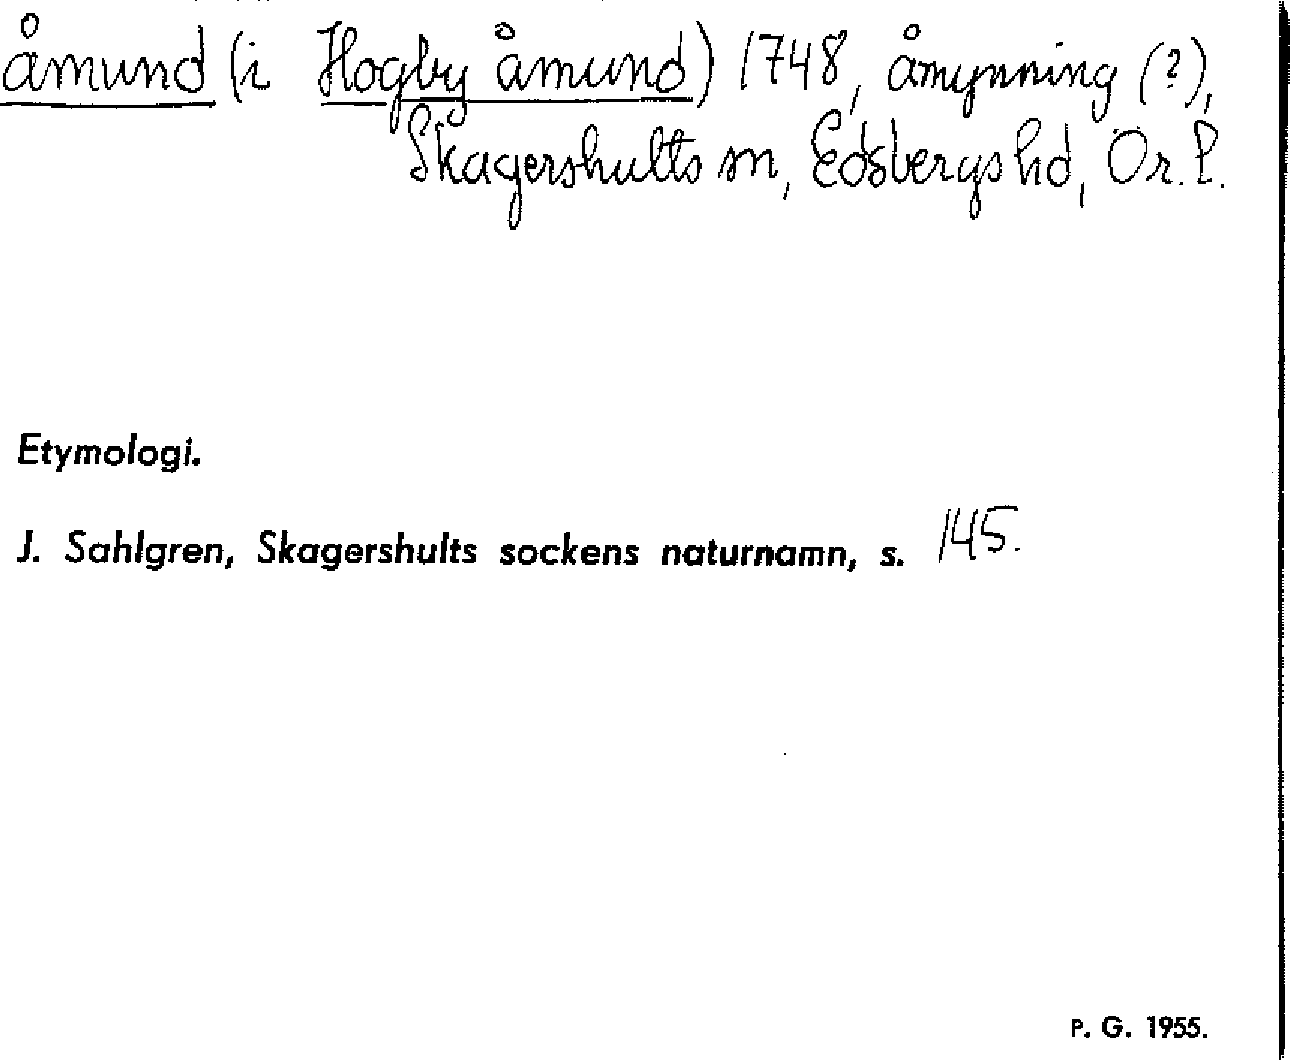 åmund (i Hogby åmund) 1748, åmynning (?),
Skagershults sn, Edsbergs hd, Ör. l.
Etymologi.
J. Sahlgren, Skagershults sockens naturnamn, s. 145.
P. G. 1955.